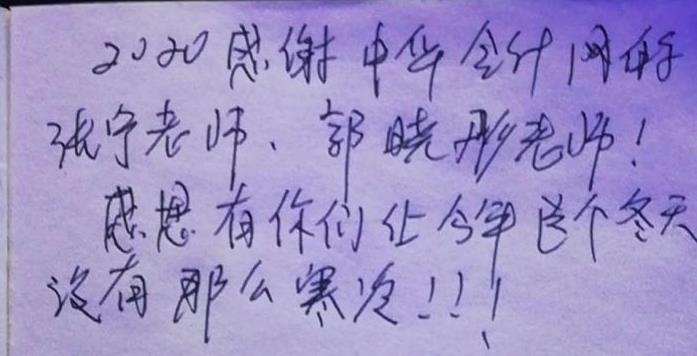 2020感谢中华会计网的
张宁老师、郭晓彤老师!
感恩有你们让今年这个冬天
没有那么寒冷!!!